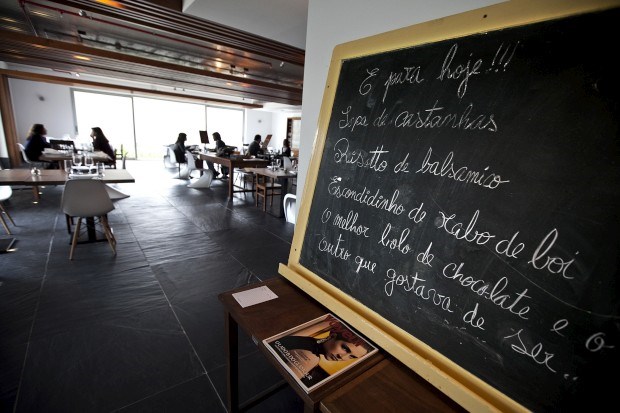 E para hoje!!!
Sopa de castanhas
Risotto de balsamico
Escondidinho de rabo de boi
O melhor bolo de chocolate e o
outro que gostava de ser...